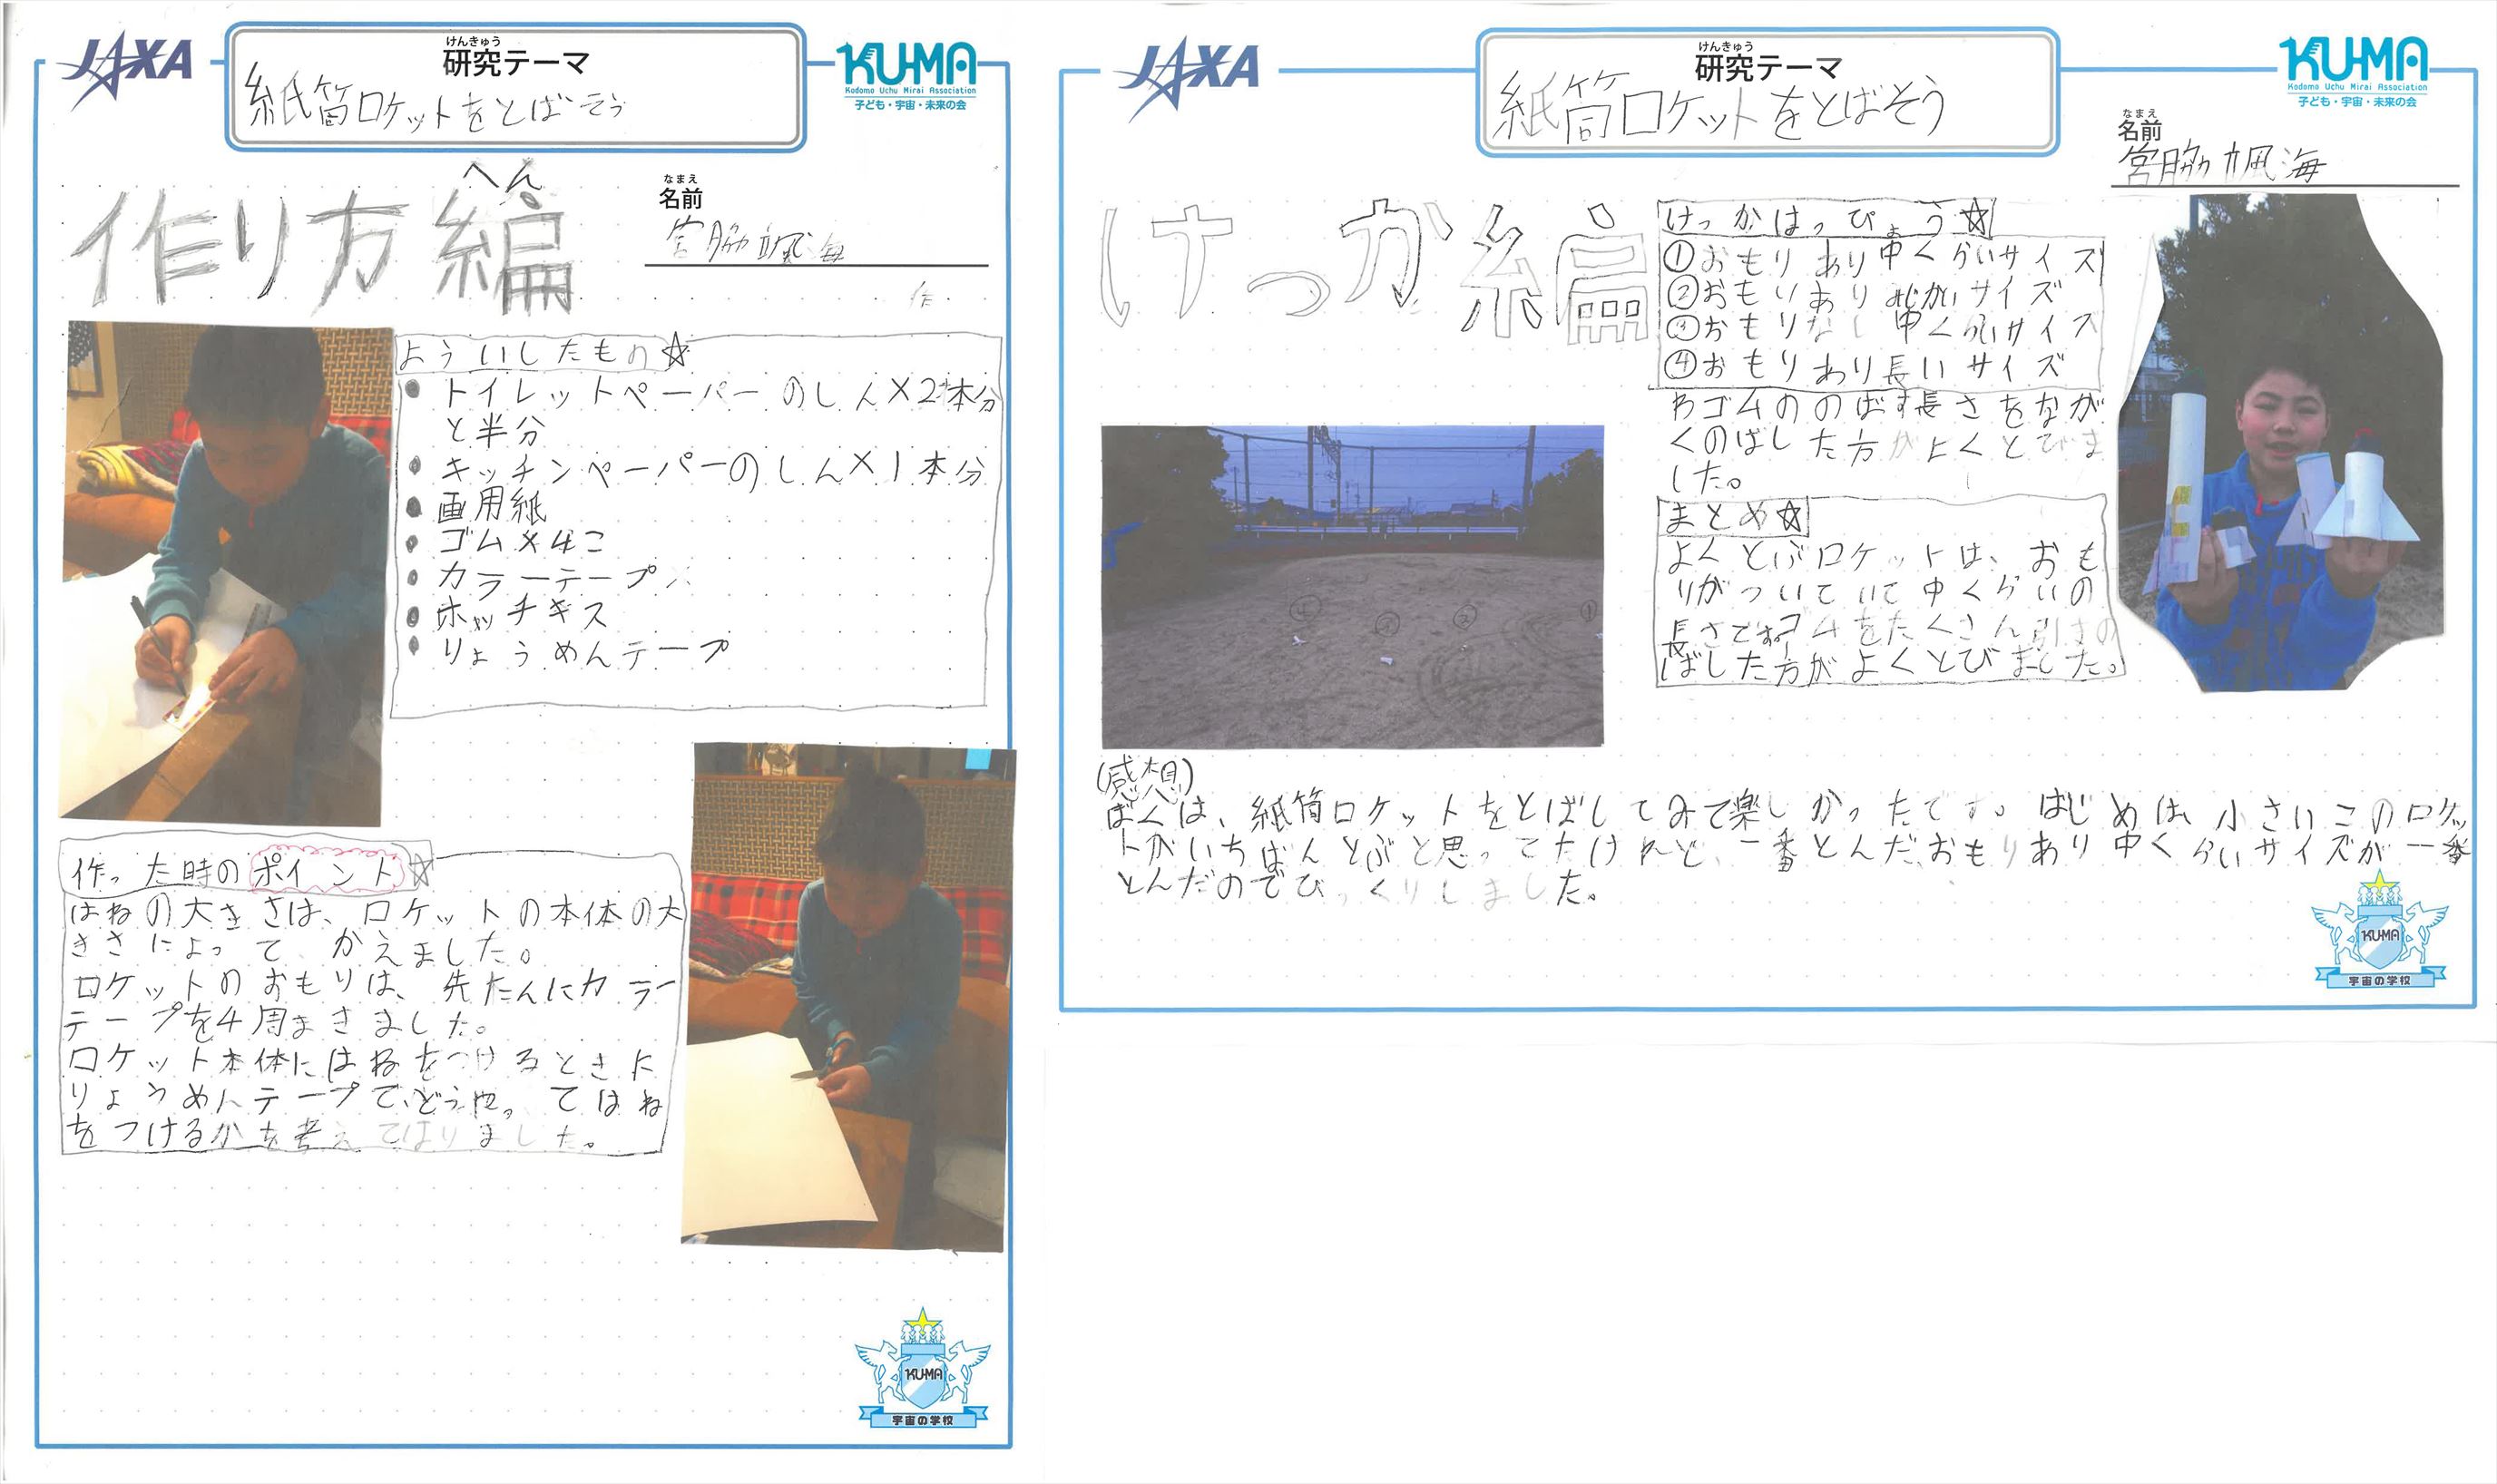 JAXA
けんきゅう
研究テーマ
紙筒ロケットをとばそう
KU-MA
Kodomo Uchu Mirai Association
子ども・宇宙・未来の会
へん
作り方編
なまえ
名前
宮脇颯海
作
よういしたもの☆
● トイレットペーパーのしん×2本分
と半分
● キッチンペーパーのしん×1本分
● 画用紙
● ゴム×4こ
● カラーテープ
● ホッチキス
● りょうめんテープ
作った時のポイント☆
はねの大きさは、ロケットの本体の大
きさによって、かえました。
ロケットのおもりは、先たんにカラー
テープを4周まきました。
ロケット本体にはねをつけるときに
りょうめんテープで、どうやってはね
をつけるかを考えてはりました。
KU-MA
宇宙の学校
JAXA
けんきゅう
研究テーマ
紙筒ロケットをとばそう
KU-MA
Kodomo Uchu Mirai Association
子ども・宇宙・未来の会
なまえ
名前
宮脇颯海
けっか編
けっかはっぴょう☆
①おもりあり中くらいサイズ
②おもりありみじかいサイズ
③おもりなし中くらいサイズ
④おもりあり長いサイズ
わゴムののばす長さをなが
くのばした方がよくとびま
した。
まとめ☆
よくとぶロケットは、おも
りがついていて中くらいの
長さです。ゴムをたくさん引きの
ばした方がよくとびました。
④
③
②
①
(感想)
ぼくは、紙筒ロケットをとばしてみて楽しかったです。はじめは、小さいこのロケッ
トがいちばんとぶと思ってたけれど、一番とんだおもりあり中くらいサイズが一番
とんだのでびっくりしました。
KU-MA
宇宙の学校